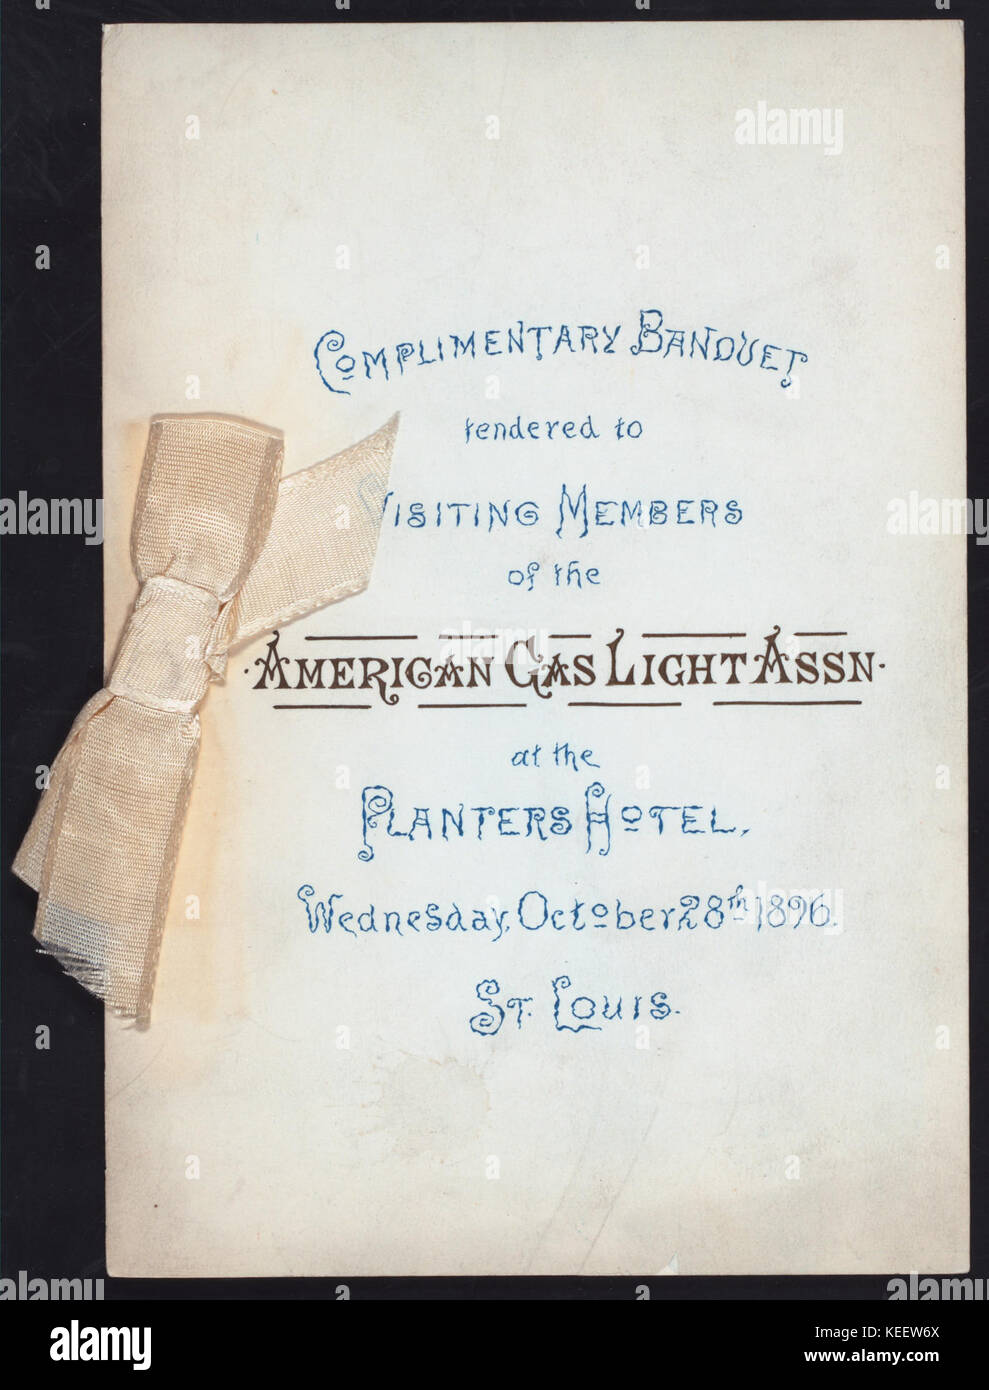 COMPLIMENTARY BANQUET
tendered to
VISITING MEMBERS
of the
·AMERICAN GAS LIGHT ASSN·
at the
PLANTERS HOTEL,
Wednesday, October 28th 1896.
ST. LOUIS.
alamy
alamy
Image ID: KEEW6X
www.alamy.com